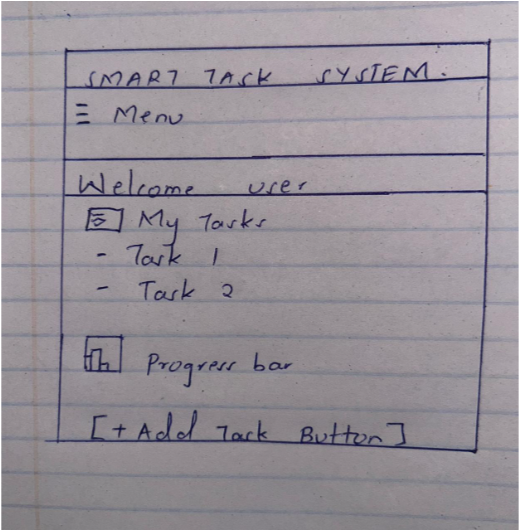 SMART TASK SYSTEM.
Menu
Welcome user
My Tasks
- Task 1
- Task 2
Progress bar
[+ Add Task Button]